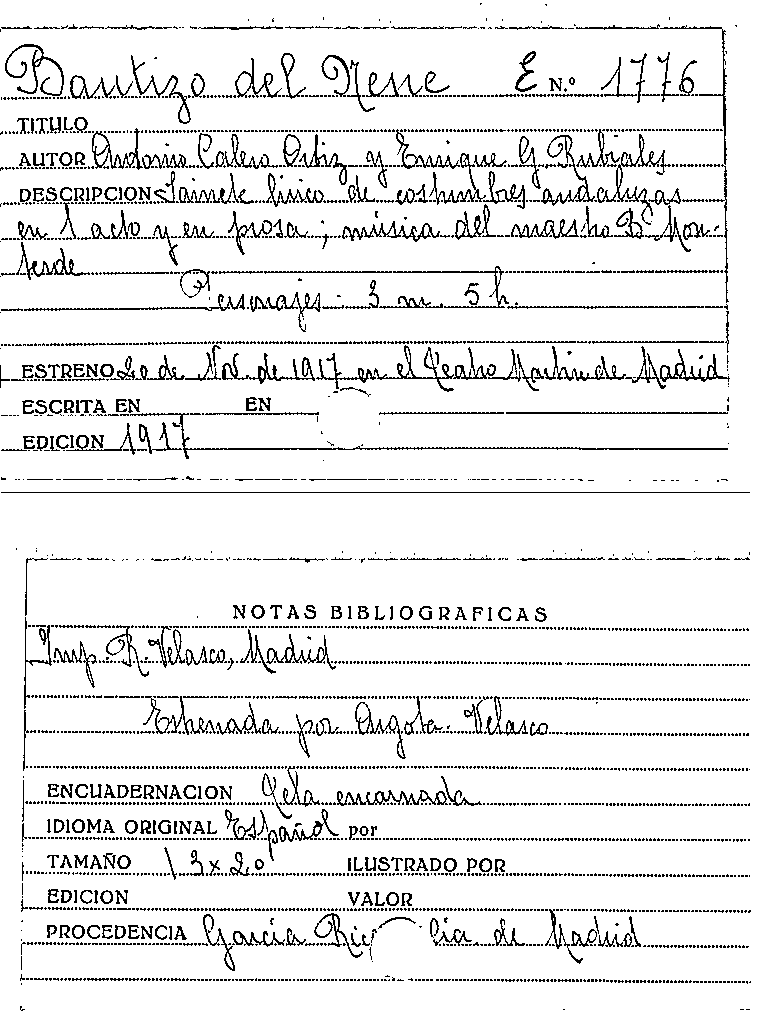 Bautizo del Nene E N.º 1776
TITULO
AUTOR Antonio Calero Ortiz y Enrique G Rubiales
DESCRIPCION Sainete lírico de costumbres andaluzas
en 1 acto y en prosa; música del maestro Bº Mon-
terde
Personajes: 3 m. 5 h.
ESTRENO 20 de Nov. de 1917 en el Teatro Martin de Madrid
ESCRITA EN EN
EDICION 1917
NOTAS BIBLIOGRAFICAS
Imp. R. Velasco, Madrid
Estrenada por Argota. Velasco
ENCUADERNACION Tela encarnada
IDIOMA ORIGINAL Español por
TAMAÑO 13 x 20 ILUSTRADO POR
EDICION VALOR
PROCEDENCIA García Rico Cía de Madrid